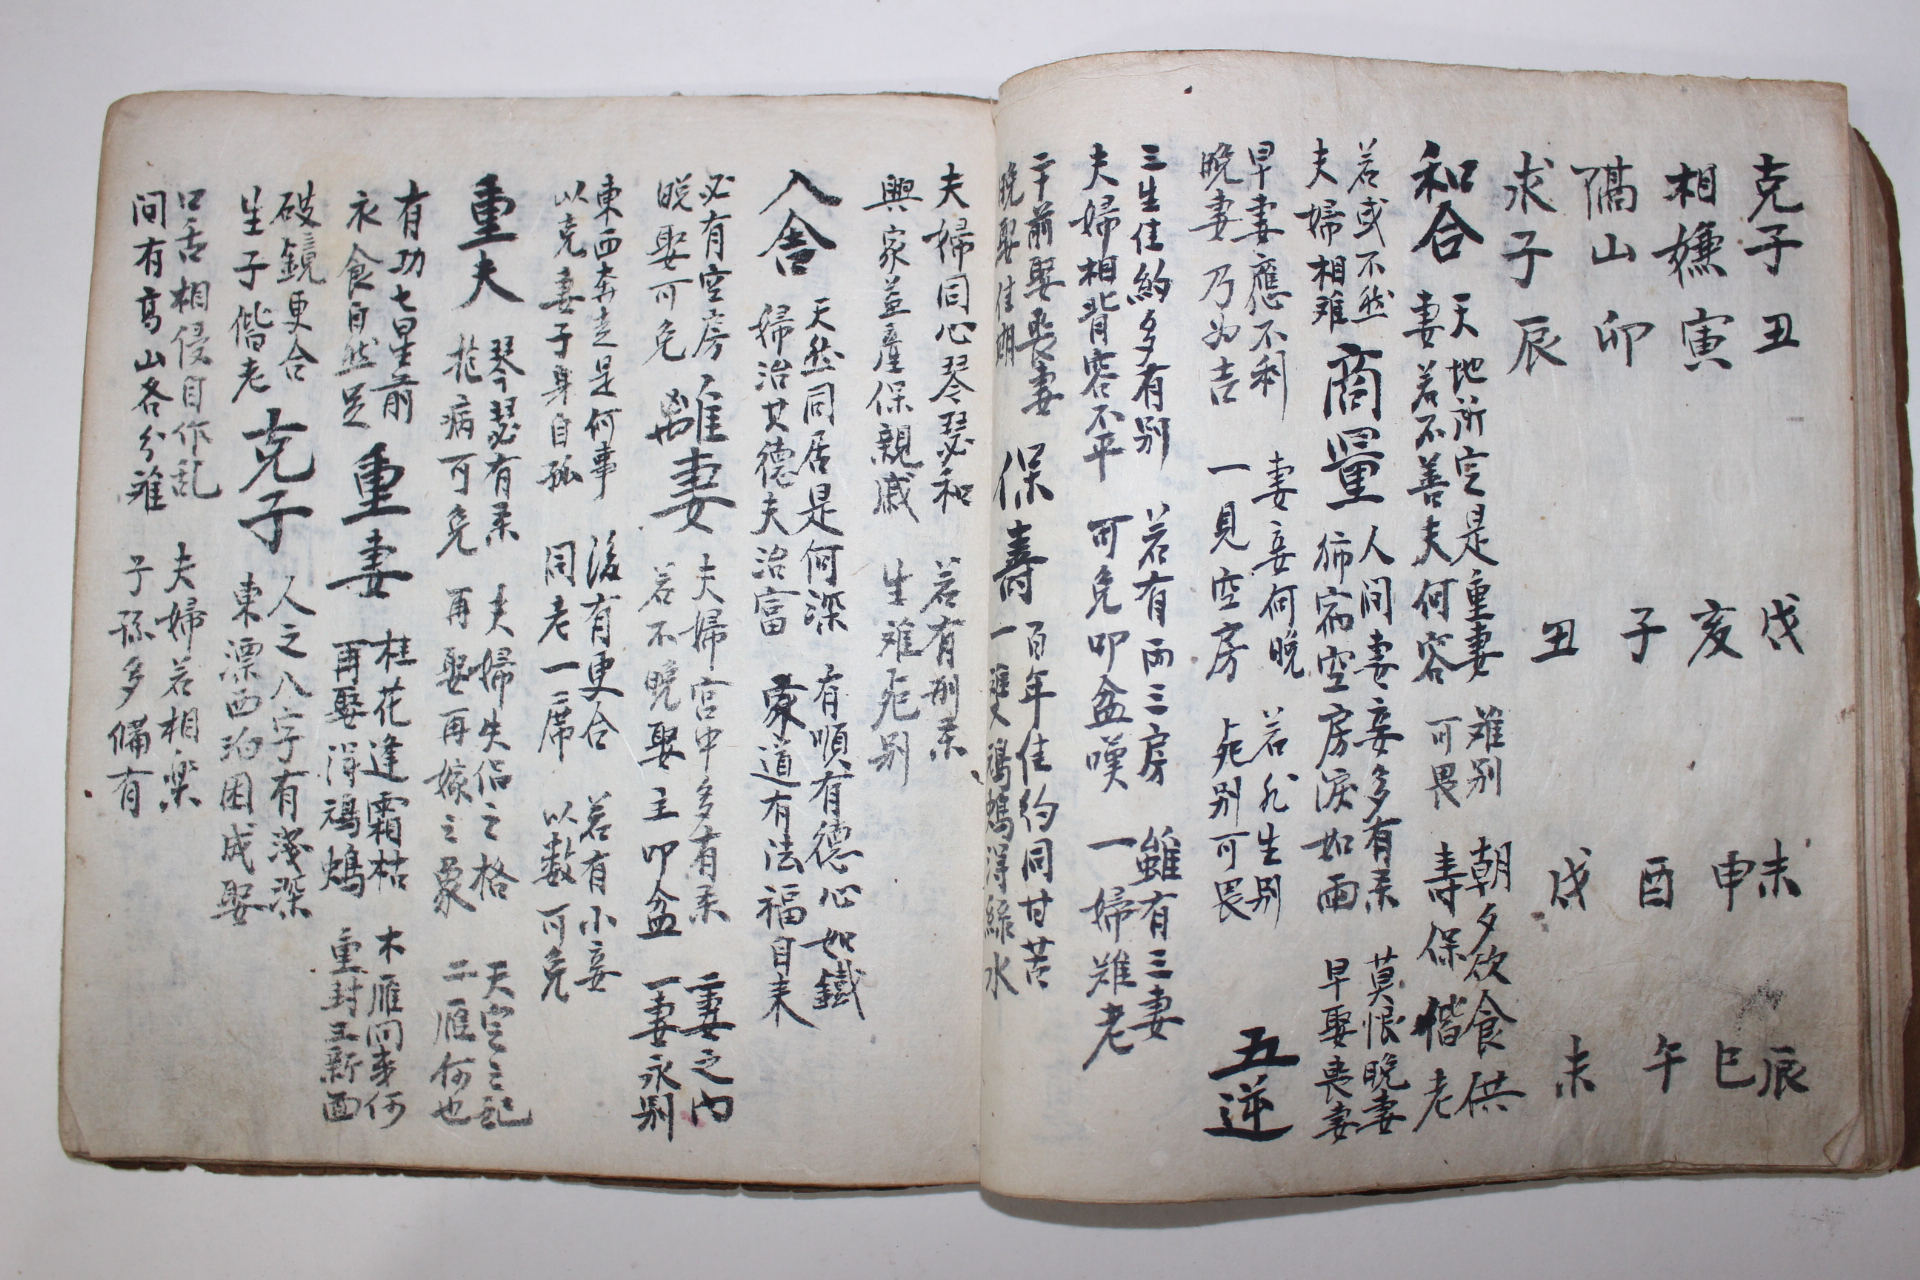 克子 丑 戌 未 辰
相嫌 寅 亥 申 巳
隔山 卯 子 酉 午
求子 辰 丑 戌 未
和合
天地所定是重妻 难别 朝夕飲食供
妻若不善夫何容 可畏 壽保偕老
若或不然
夫婦相难
商量
人間妻妾多有柔 莫恨晚妻
病宿空房淚如雨 早娶喪妻
早妻應不利 妻妾何晚 若非生别
晚妻乃为吉 一見空房 死别可畏
五逆
三生佳約多有别 若有両三房 雖有三妻
夫婦相背容不平 可免叩盆嘆 一婦难老
二十前娶喪妻
晚娶佳期
保壽
百年佳約同甘苦
一雙鴻鵠得綠水
夫婦同心琴瑟和 若有刑柔
興家益產保親戚 生难死别
入舍
天然同居是何深 有順有德心如鐵
婦治其德夫治富 家道有法福自来
必有空房
晚娶可免
離妻
夫婦宮中多有柔 二妻之内
若不晚娶主叩盆 一妻永别
東西奔走是何事 後有更合 若有小妾
以克妻子身自孤 同老一席 以数可免
重夫
琴瑟有柔 夫婦失侣之格 天定之配
於病可免 再娶再嫁之象 二雁何也
有功七星前
永食自然足
重妻
桂花逢霜枯 木雁向東何
再娶得鴻鵠 重封玉新酉
破鏡更合
生子偕老
克子
人之八字有淺深
東漂西泊困成娶
口舌相侵自作乱 夫婦若相樂
間有高山各分难 子孫多備有